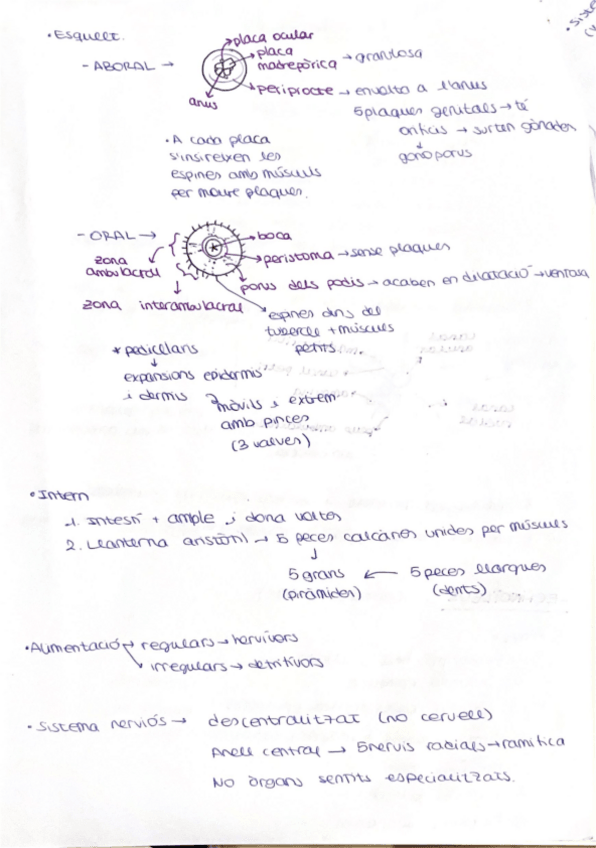 • Esquelet.
- ABORAL →
placa ocular
placa
madrepòrica → granulosa
periprocte → envolta a l'anus
anus
5 plaques genitals → té
orificis → surten gònades
↓
gonòporus
• A cada placa
s'insireixen les
espines amb músculs
per moure plaques.
- ORAL →
boca
peristoma → sense plaques
porus dels podis → acaben en dilatació → ventosa
zona
ambulacral
zona interambulacral
espines dins del
tubercle + músculs
petits.
* pedicel·laris
↓
expansions epidermis
i dermis
mòvils i extrem
amb pinces
(3 valves)
• Intern
1. Intestí + ample i dona voltes
2. Llanterna aristòtil → 5 peces calcàries unides per músculs
↓
5 grans ← 5 peces llargues
(piràmides) (dents)
• Alimentació → regulars → hervívors
irregulars → detritívors
• Sistema nerviós → descentralitzat (no cervell)
Anell central → 5 nervis radials → ramifica
No òrgans sentits especialitzats.